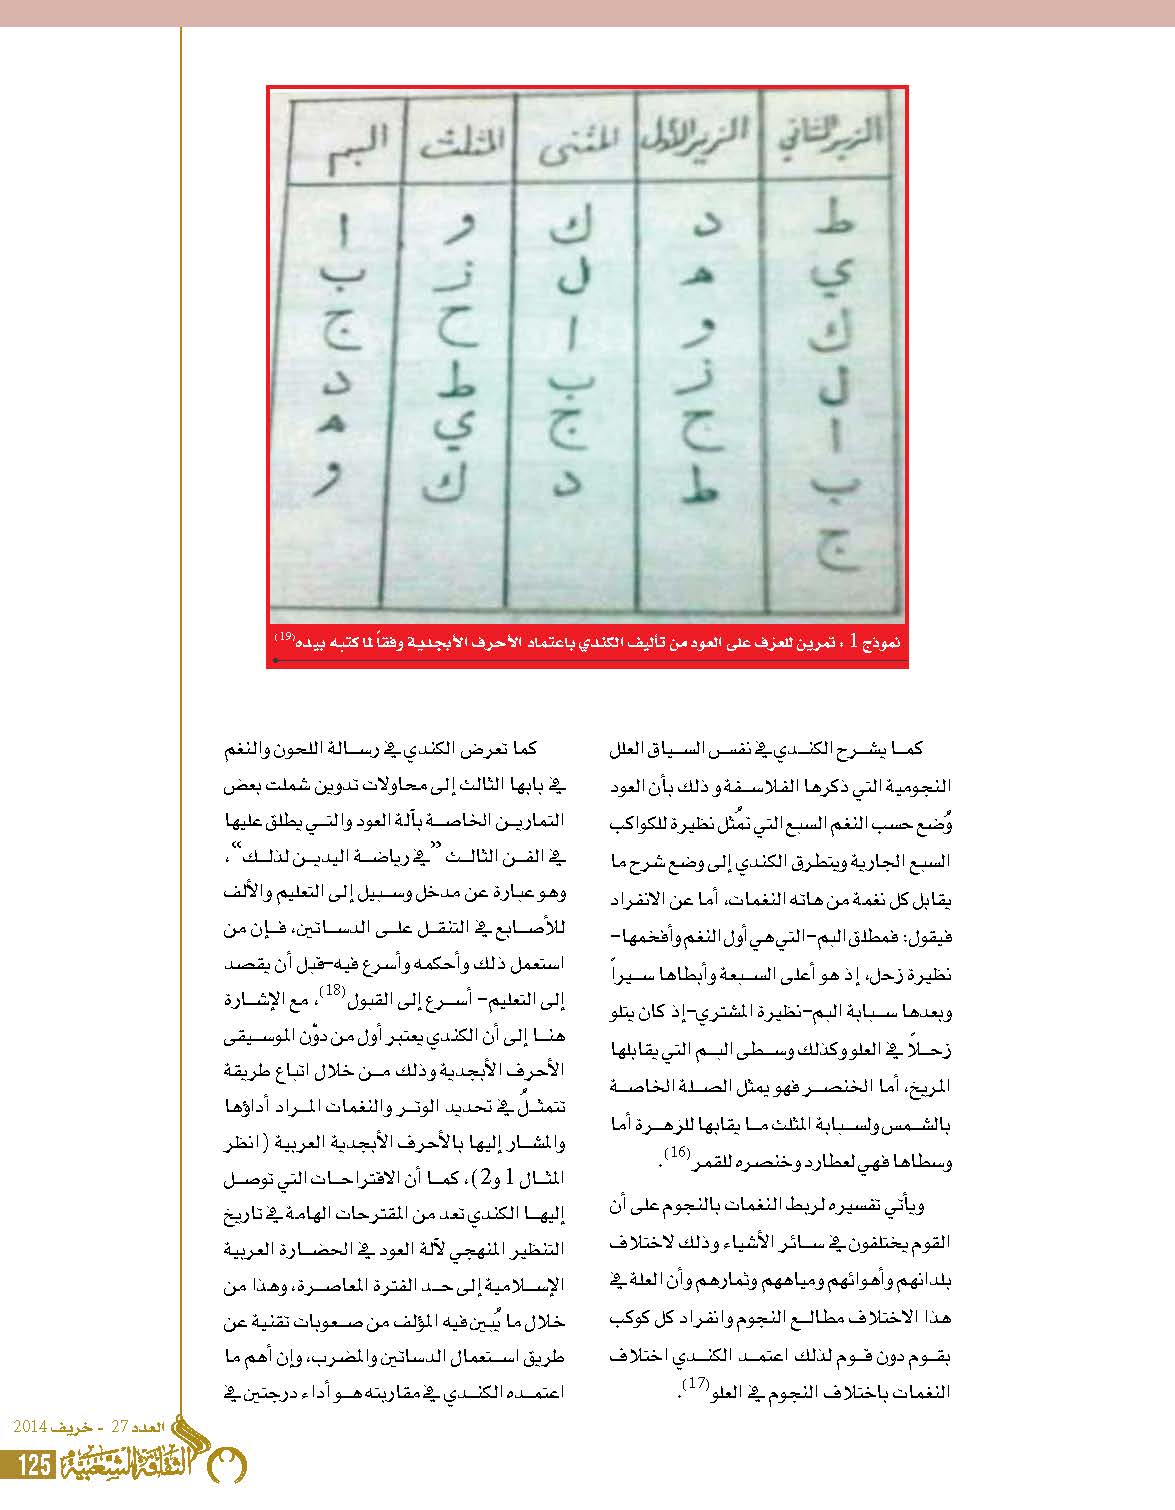 الزير الثاني الزير الأول المثنى المثلث البم
ط د ك و ا
ي ه ل ز ب
ك و ا ح ج
ل ز ب ط د
ا ح ج ي ه
ب ط د ك و
ج
نموذج 1 : تمرين للعزف على العود من تأليف الكندي باعتماد الأحرف الأبجدية وفقاً لما كتبه بيده(19)
كما يشرح الكندي في نفس السياق العلل
النجومية التي ذكرها الفلاسفة و ذلك بأن العود
وُضع حسب النغم السبع التي تمُثل نظيرة للكواكب
السبع الجارية ويتطرق الكندي إلى وضع شرح ما
يقابل كل نغمة من هاته النغمات، أما عن الانفراد
فيقول: فمطلق البم-التي هي أول النغم وأفخمها-
نظيرة زحل، إذ هو أعلى السبعة وأبطاها سيراً
وبعدها سبابة البم-نظيرة المشتري-إذ كان يتلو
زحلاً في العلو وكذلك وسطى البم التي يقابلها
المريخ، أما الخنصر فهو يمثل الصلة الخاصة
بالشمس ولسبابة المثلث ما يقابها للزهرة أما
وسطاها فهي لعطارد وخنصره للقمر(16).
ويأتي تفسيره لربط النغمات بالنجوم على أن
القوم يختلفون في سائر الأشياء وذلك لاختلاف
بلدانهم وأهوائهم ومياههم وثمارهم وأن العلة في
هذا الاختلاف مطالع النجوم وانفراد كل كوكب
بقوم دون قوم لذلك اعتمد الكندي اختلاف
النغمات باختلاف النجوم في العلو(17).
كما تعرض الكندي في رسالة اللحون والنغم
في بابها الثالث إلى محاولات تدوين شملت بعض
التمارين الخاصة بآلة العود والتي يطلق عليها
في الفن الثالث ”في رياضة اليدين لذلك“،
وهو عبارة عن مدخل وسبيل إلى التعليم والألف
للأصابع في التنقل على الدساتين، فإن من
استعمل ذلك وأحكمه وأسرع فيه-قبل أن يقصد
إلى التعليم- أسرع إلى القبول(18)، مع الإشارة
هنا إلى أن الكندي يعتبر أول من دوّن الموسيقى
الأحرف الأبجدية وذلك من خلال اتباع طريقة
تتمثلُ في تحديد الوتر والنغمات المراد أداؤها
والمشار إليها بالأحرف الأبجدية العربية (انظر
المثال 1 و2)، كما أن الاقتراحات التي توصل
إليها الكندي تعد من المقترحات الهامة في تاريخ
التنظير المنهجي لآلة العود في الحضارة العربية
الإسلامية إلى حد الفترة المعاصرة، وهذا من
خلال ما يُبين فيه المؤلف من صعوبات تقنية عن
طريق استعمال الدساتين والمضرب، وإن أهم ما
اعتمده الكندي في مقاربته هو أداء درجتين في
العدد 27 - خريف 2014
الثقافة الشعبية
125